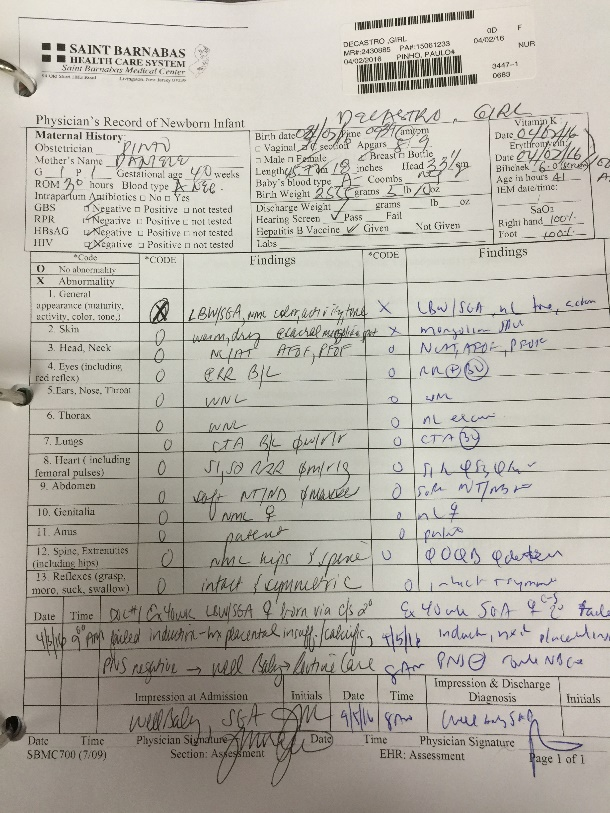 DECASTRO ,GIRL 0D F
MR#:2430885 PA#:15061233 04/02/16
04/02/2016 PINHO, PAULO4 NUR
3447-1
0683
SAINT BARNABAS
HEALTH CARE SYSTEM
Saint Barnabas Medical Center
94 Old Short Hills Road Livingston, New Jersey
DECASTRO, GIRL
Physician's Record of Newborn Infant
Maternal History:
Obstetrician PINTO
Mother's Name DANIELE
G 1 P 1 Gestational age 40 weeks
ROM 30 hours Blood type A NEG
Intrapartum Antibiotics □ No □ Yes
GBS Negative □ Positive □ not tested
RPR Negative □ Positive □ not tested
HBsAG Negative □ Positive □ not tested
HIV Negative □ Positive □ not tested
Birth date 04/02/ Time am/pm
□ Vaginal c section Apgars 8/9
□ Male □ Female Breast □ Bottle
Length 18 inches Head 33 cm
Baby's blood type Coombs
Birth Weight grams 5 lb oz
Discharge Weight grams lb oz
Hearing Screen ✓ Pass Fail
Hepatitis B Vaccine ✓ Given Not Given
Labs
Vitamin K
Date 04/02/16
Erythromycin
Date 04/02/16
Bilichek 6.0
Age in hours 41
IEM date/time:
SaO2
Right hand 100%
Foot 100%
*Code *CODE Findings *CODE Findings
O No abnormality
X Abnormality
1. General appearance (maturity, activity, color, tone,) X LBW/SGA, nml color, activity, tone X LBW/SGA, nl tone, color
2. Skin O warm, dry X mongolian
3. Head, Neck O NC/AT AFOF, PFOF O NCAT, AFOF, PFOF
4. Eyes (including red reflex) O ⊕RR B/L O RR ⊕ BL
5.Ears, Nose, Throat O WNL O WNL
6. Thorax O WNL O nl
7. Lungs O CTA B/L Øw/r/r O CTA BL
8. Heart ( including femoral pulses) O S1, S2 RRR Øm/r/g O
9. Abdomen O soft NT/ND Ømasses O soft NT/ND
10. Genitalia O NML ♀ O nl ♀
11. Anus O patent O patent
12. Spine, Extremities (including hips) O NML hips & spine O
13. Reflexes (grasp, moro, suck, swallow) O intact & symmetric O intact & symm
Date Time DOL#1 Ex 40wk LBW/SGA ♀ born via c/s 2° Ex 40wk SGA ♀
4/3/16 9 AM failed induction - hx placental insuff./calcific, 4/5/16 induct,
PNS negative → Well Baby → Routine Care 8am PNL ⊖
Impression at Admission Initials Date Time Impression & Discharge Diagnosis Initials
Well Baby, SGA 4/5/16 8am Well baby SGA
Date Time Physician Signature Date Time Physician Signature
SBMC700 (7/09) Section: Assessment EHR: Assessment Page 1 of 1